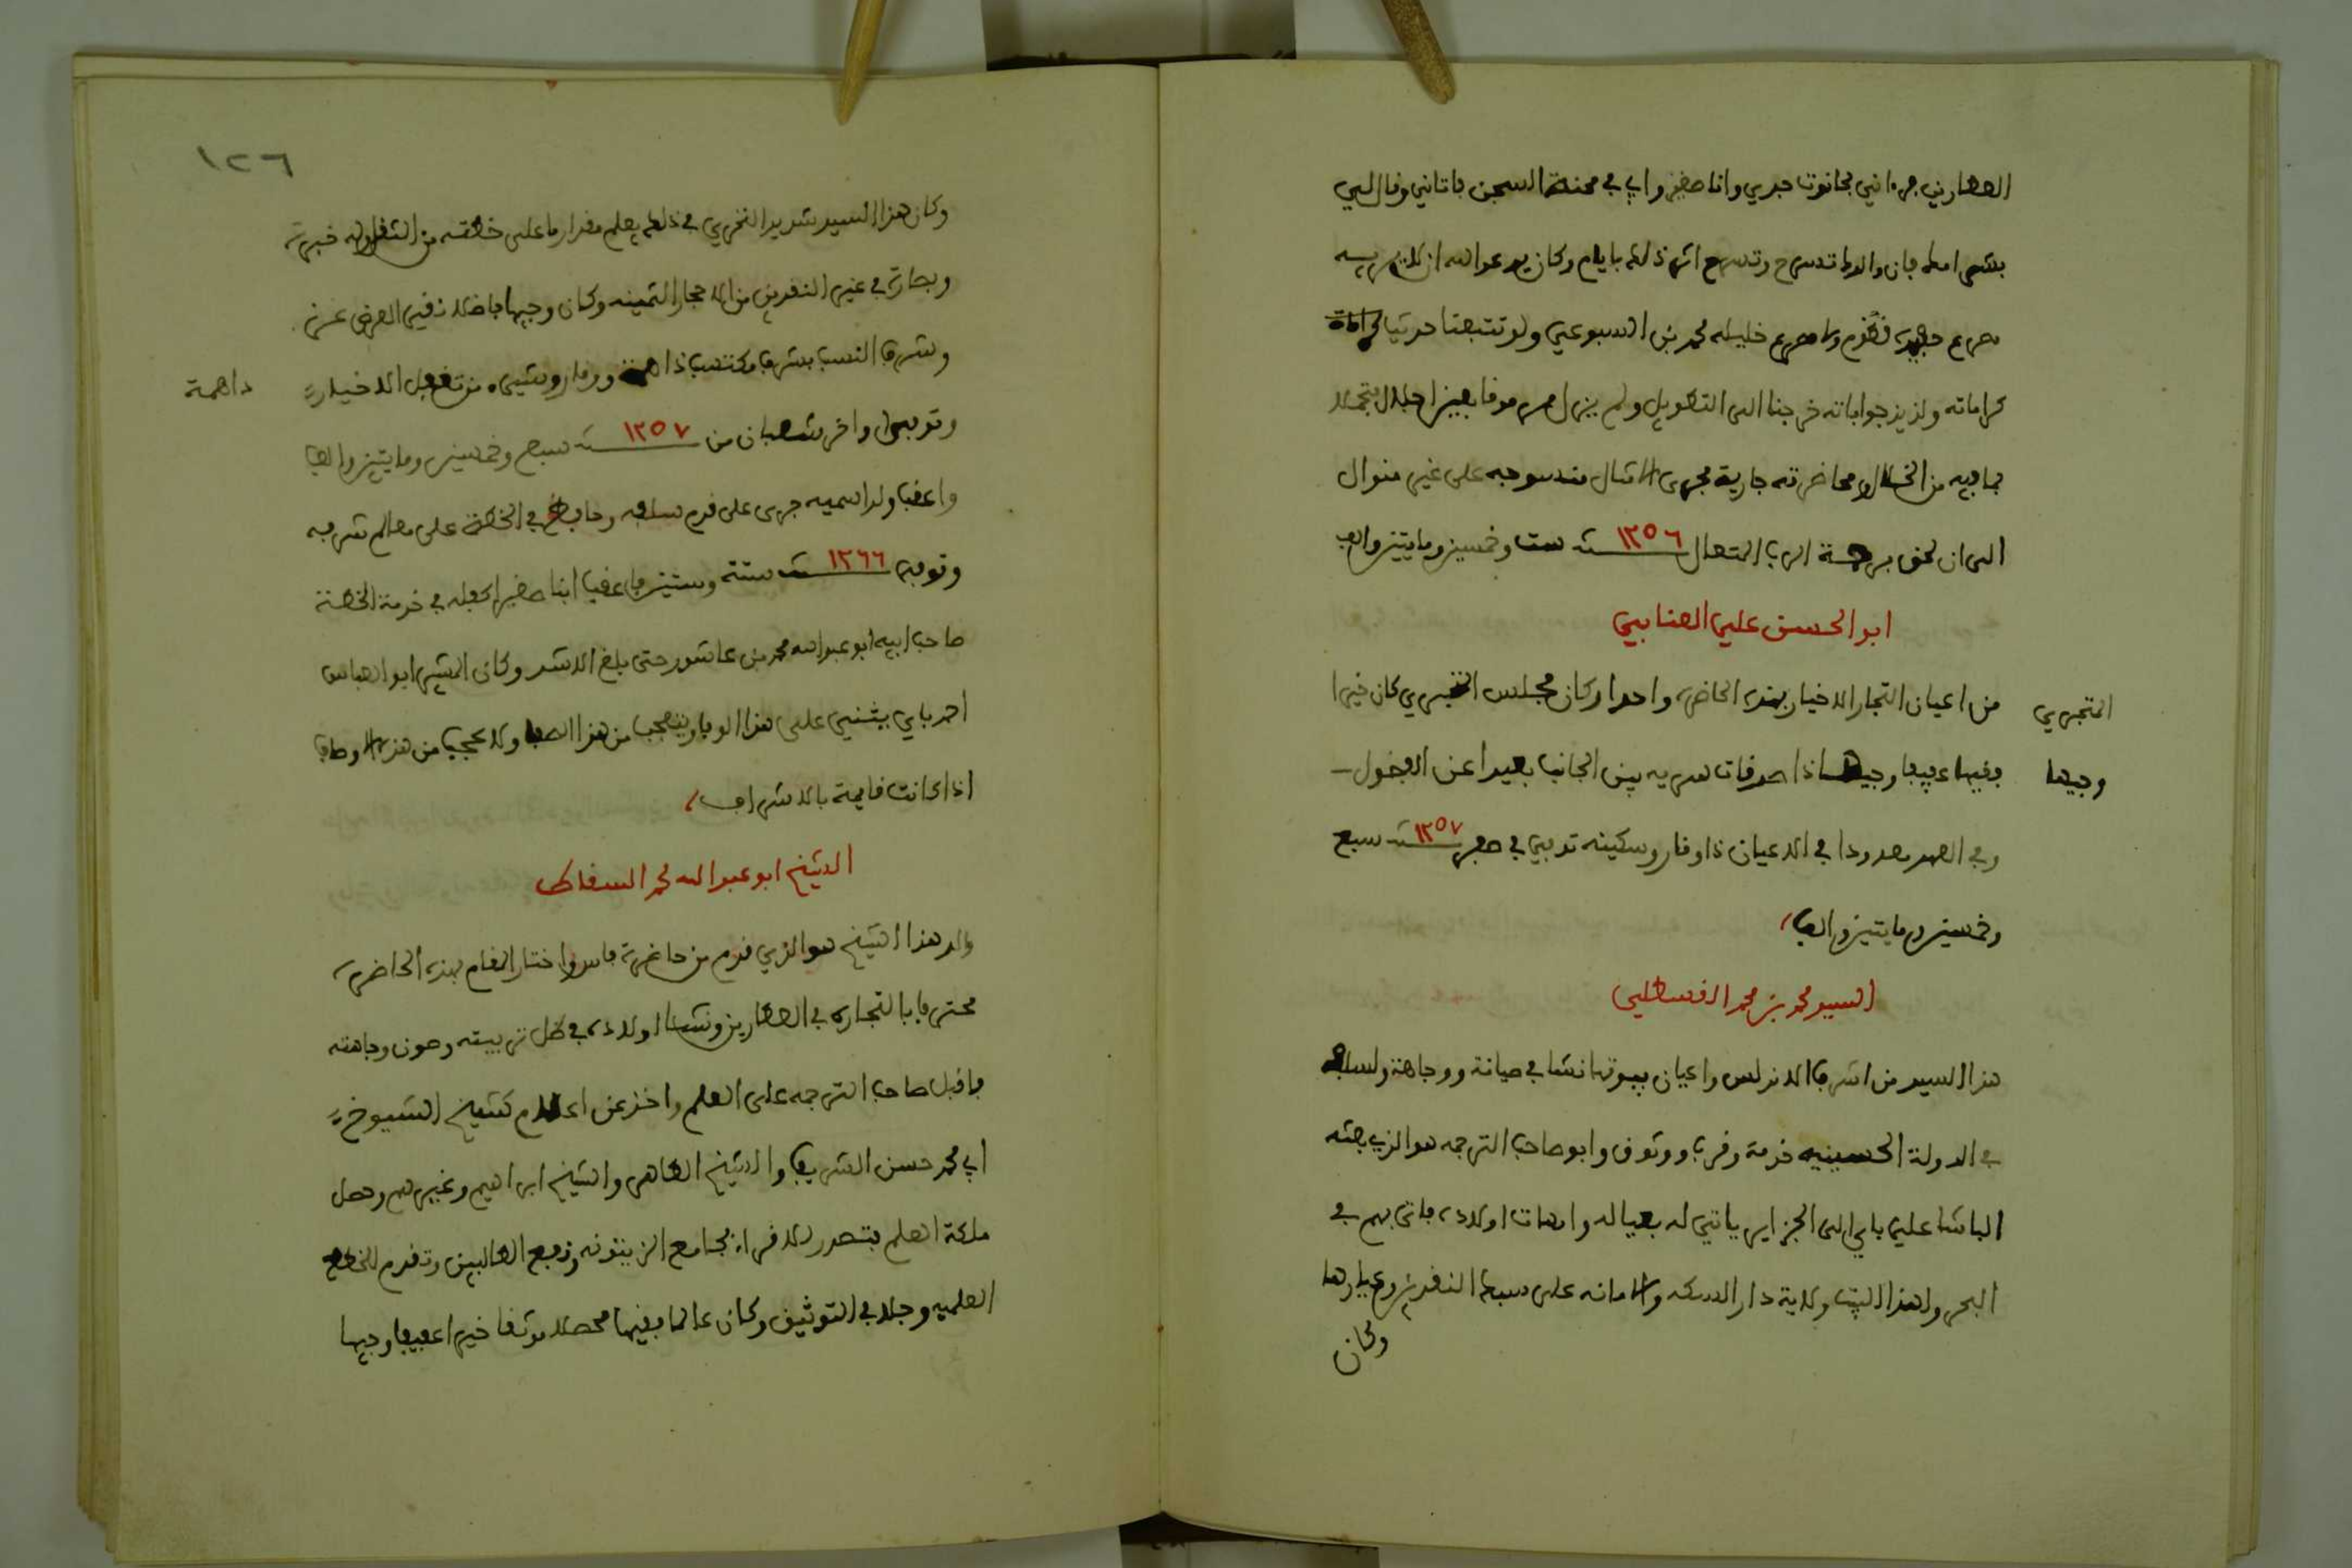 العطارين فرءاني بحانوت جدي وانا صغير وابي في محنة السجن فاتاني وقال لي
بشر امك فان والدك تسرح وتسرح اثر ذلك بايام وكان يدعو الله ان
محمد بن السبوعي ولو تتبعنا
كراماته ولذيذ جواباته خرجنا الى التطويل ولم يزل مرموقا بعين اجلال متجملا
بما فيه من الخلال ومحاضرته جارية مجرى الامثال منسوجه على غير منوال
الى ان لحق برحمة الرب المتعال ١٢٥٦ سنة ست وخمسين ومايتين والف
ابو الحسن علي العنابي
من اعيان التجار الاخيار بهذه الحاضره واحد اركان مجلس المتجري كان خيرا
المتجري
وفيها عفيفا وجيها ذا صدقات سريه لين الجانب بعيدا عن الفضول
وجيها
وفي العهد معدودا في الاعيان ذا وقار وسكينه توفي في صفر ١٢٥٧ سنة سبع
وخمسين ومايتين والف
السيد محمد بن محمد القسطلي
هذا السيد من اشراف الاندلس واعيان بيوتها نشا في صيانة ووجاهة ولسلفه
في الدولة الحسينيه خدمة وقرب ووثوق وابو صاحب الترجمه هو الذي بعثه
الباشا علي باي الى الجزاير ياتي له بعياله وامهات اولاده فاتى بهم في
البحر ولهذا البيت ولاية دار السكه والامانه على سبك النقدين وعيارها
وكان
١٢٦
وكان هذا السيد شديد التحري في ذلك يعلم مقدار ما على خطته من الثقل وله خبرة
وبصارة في غير النقدين من الاحجار الثمينه وكان وجيها فاضلا نقي العرض
وشرف النسب بشرف مكتسب ذا همة ووقار
ذا همة
وتوفي اواخر شعبان من ١٢٥٧ سنة سبع وخمسين ومايتين والف
واعقب ولدا سميه جرى على قدم سلفه وحافظ في الخطة على معالم شرفه
وتوفي ١٢٦٦ سنة ستة وستين واعقب ابنا صغيرا كفله في خدمة الخطة
صاحب ابيه ابو عبد الله محمد بن عاشور حتى بلغ الاشد وكان المشير ابو العباس
احمد باي يثني على هذا الوفا ويتعجب من هذا الصفا ولا عجب من هذه الاوصاف
اذا كانت قايمة بالاشراف
الشيخ ابو عبد الله محمد السقاط
والد هذا الشيخ هو الذي قدم من حاضرة فاس واختار المقام بهذه الحاضرة
محترفا بالتجاره في العطارين ونشا اولاده في ظل تربيته وصون وجاهته
فاقبل صاحب الترجمه على العلم واخذ عن اعلام كشيخ الشيوخ
ابي محمد حسن الشريف والشيخ الطاهر والشيخ ابراهيم وغيرهم وحصل
ملكة العلم فتصدر للاقراء بجامع الزيتونه ونفع الطالبين وتقدم للخطط
العلميه وجلد في التوثيق وكان عالما فقيها محصلا موثقا خيرا عفيفا وجيها